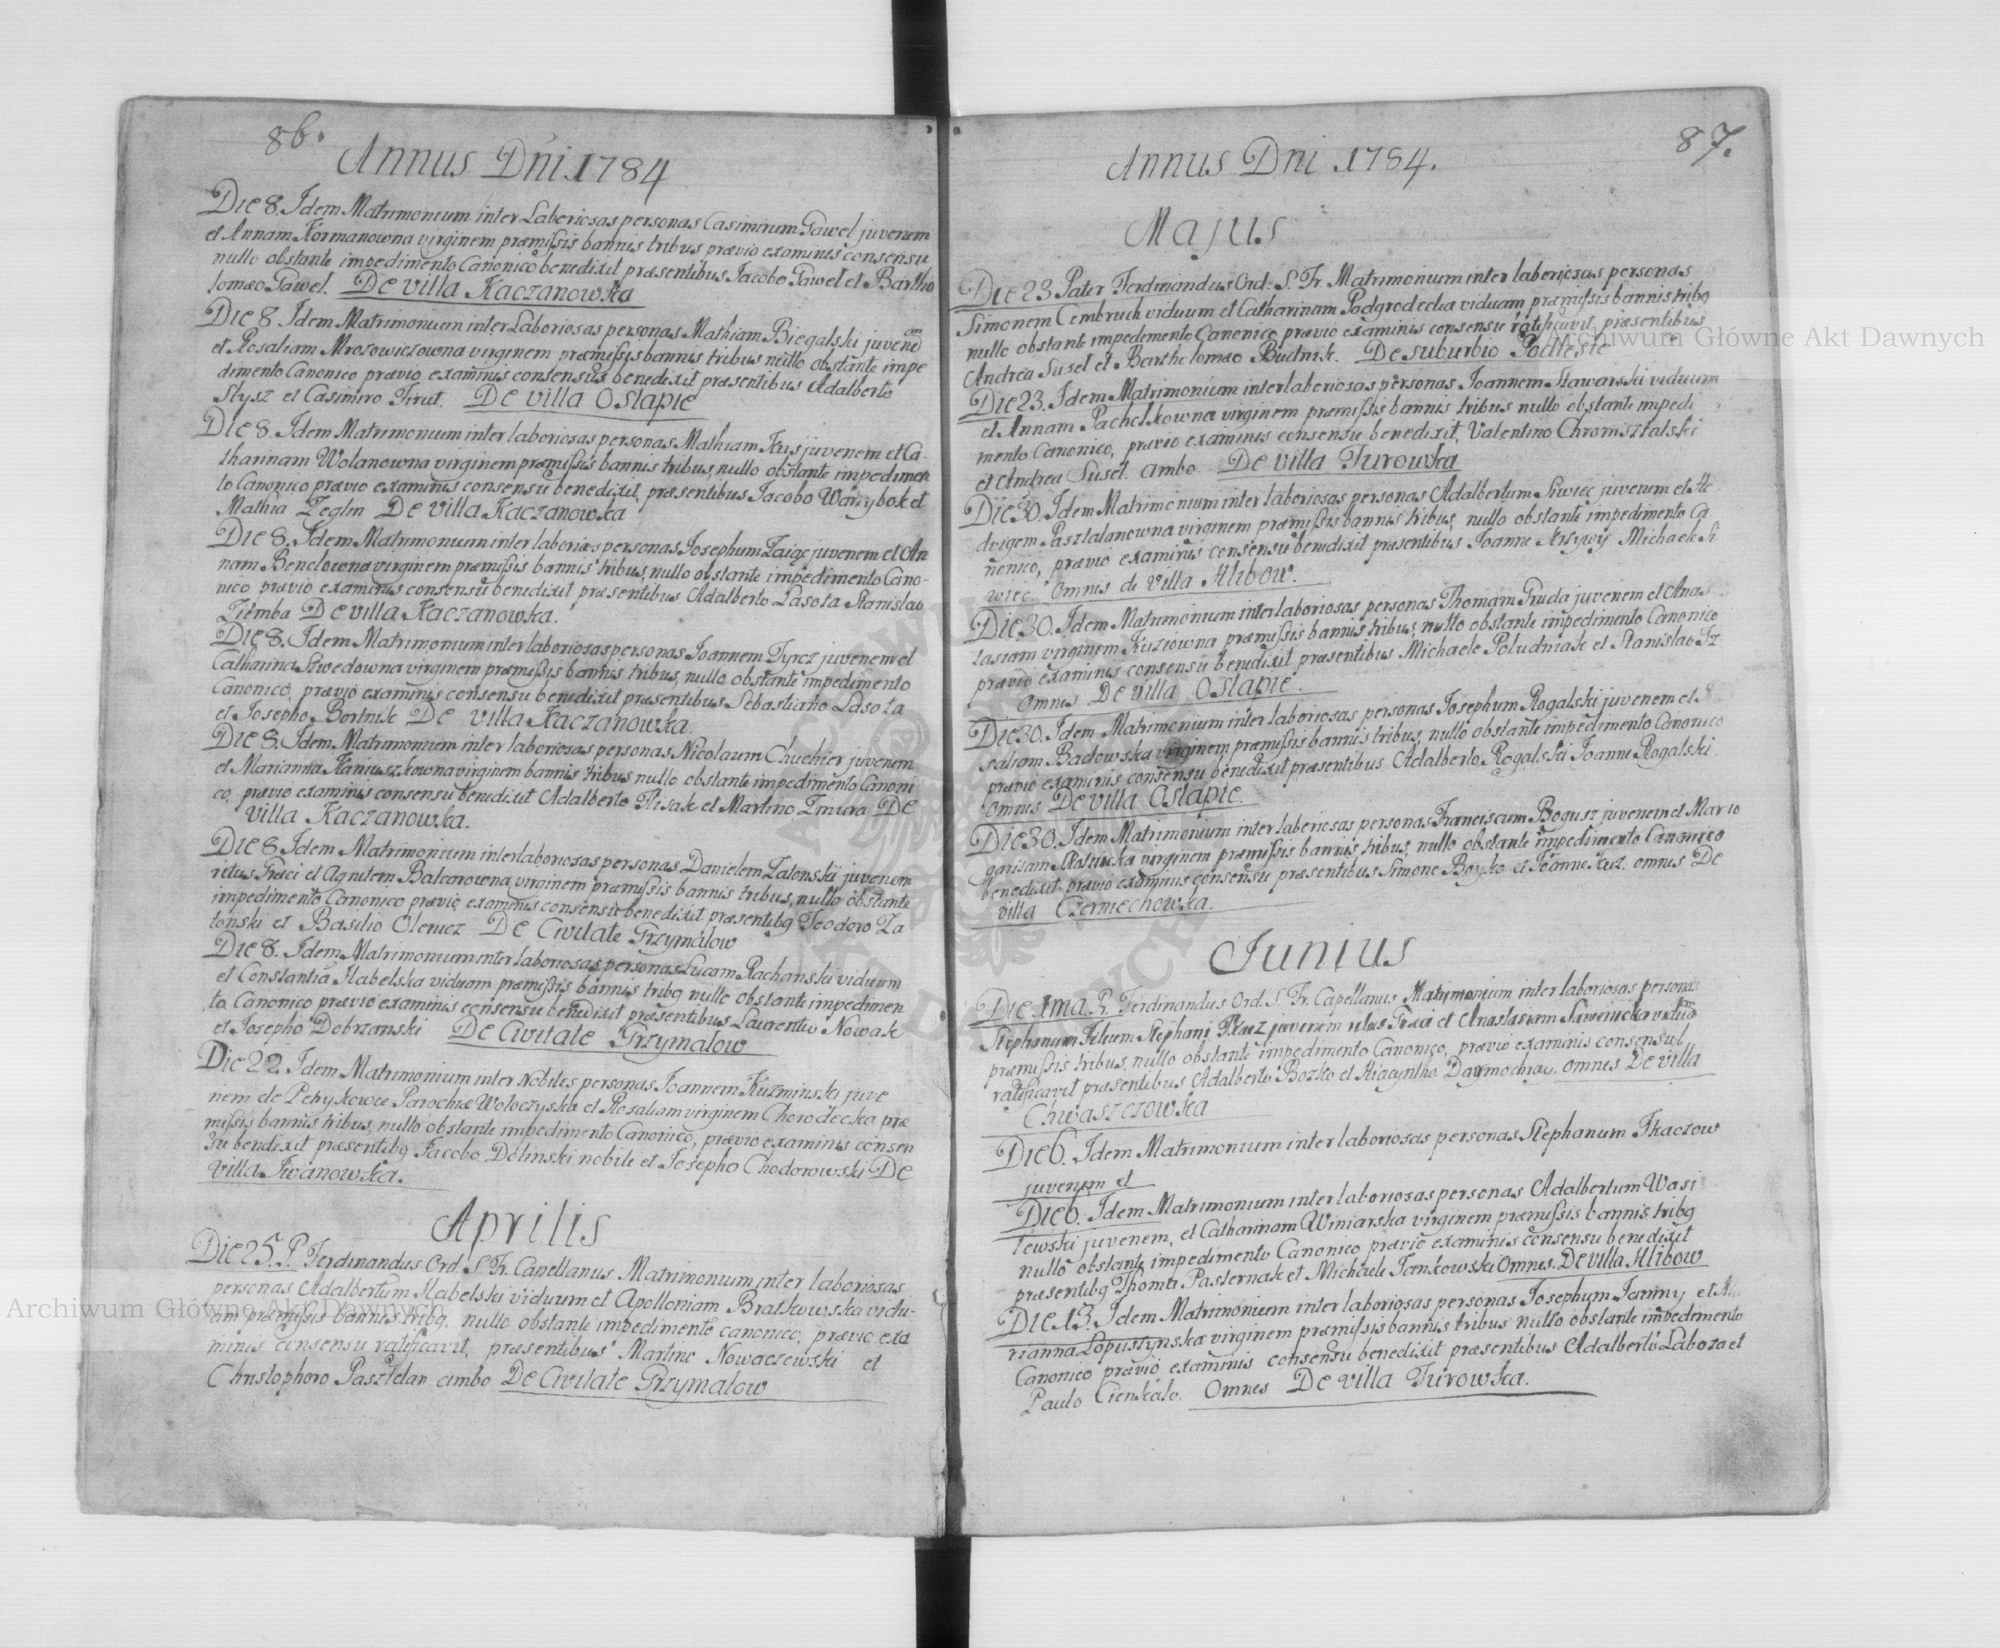 86.
Annus Dni 1784
Die 8. Idem Matrimonium inter Laboriosas personas Casimirum Gawel juvenem
et Annam Kormanowna virginem præmissis bannis tribus prævio examinis consensu
nullo obstante impedimento Canonico benedixit præsentibus Jacobo Gawel et Bartho
lomæo Gawel. De villa Kaczanowka
Die 8. Idem Matrimonium inter Laboriosas personas Mathiam Biegalski juvenem
et Rosaliam Mrozowiczowna virginem præmissis bannis tribus nullo obstante impe
dimento Canonico prævio examinis consensu benedixit præsentibus Adalberto
Slysz et Casimiro Firut. De villa Ostapie
Die 8. Idem Matrimonium inter laboriosas personas Mathiam Kus juvenem et Ca-
tharinam Wolanowna virginem præmissis bannis tribus, nullo obstante impedimen
to Canonico prævio examinis consensu benedixit, præsentibus Jacobo Warrybok et
Mathia Zeglin De villa Kaczanowka
Die 8. Idem Matrimonium inter laborias personas Josephum Zaiąc juvenem et An
nam Benclowna virginem præmissis bannis tribus, nullo obstante impedimento Cano-
nico prævio examinis consensu benedixit præsentibus Adalberto Lasota Stanislao
Ziemba De villa Kaczanowka.
Die 8. Idem Matrimonium inter laboriosas personas Joannem Tyrcz juvenem et
Catharina Szwedowna virginem præmissis bannis tribus, nullo obstante impedimento
Canonico, prævio examinis consensu benedixit præsentibus Sebastiano Lasota
et Josepho Bortnik De villa Kaczanowka.
Die 8. Idem Matrimonium inter laboriosas personas Nicolaum Chuchier juvenem
et Marianna Kaniuszkowna virginem bannis tribus nullo obstante impedimento Canoni
co, prævio examinis consensu benedixit Adalberto Flisak et Martino Zmura De
villa Kaczanowka.
Die 8 Idem Matrimonium inter laboriosas personas Danielem Zalonskij juvenem
ritus Græci et Agnetem Balcerowna virginem præmissis bannis tribus, nullo obstante
impedimento Canonico prævio examinis consensu benedixit præsentibq Teodoro Za
lonski et Basilio Olenicz De Civitate Grzymalow
Die 8. Idem Matrimonium inter laboriosas personas Lucam Rachanski viduum
et Constantia Habelska viduam præmissis bannis tribq nullo obstante impedimen
to Canonico prævio examinis consensu benedixit præsentibus Laurentio Nowak
et Josepho Dobrzanski De Civitate Grzymalow
Die 22. Idem Matrimonium inter Nobiles personas Joannem Kuzminski juve
nem de Petrykowce Parochiæ Woloczyska et Rosaliam virginem Chorodecka præ
missis bannis tribus, nullo obstante impedimento Canonico, prævio examinis consen
su bendixit præsentibq Jacobo Dolinski nobile et Josepho Chodorowski De
villa Iwanowka.
Aprilis
Die 25. P. Ferdinandus Ord. S. Fr. Capellanus Matrimonium inter laboriosas
personas Adalbertum Habelski viduum et Apolloniam Bratkowska vidu-
am præmissis bannis tribq. nullo obstante impedimento canonico, prævio exa
minis consensu ratificavit, præsentibus Martino Nowaczewski et
Christophoro Pasztelan ambo De Civitate Grzymalow
87.
Annus Dni 1784.
Majus
Die 23 Pater Ferdinandus Ord. S. Fr. Matrimonium inter laboriosas personas
Simonem Cembruch viduum et Catharinam Podgrodecka viduam præmissis bannis tribq
nullo obstante impedemento Canonico prævio examinis consensu ratificavit præsentibus
Andrea Susel et Bartholomæo Budnik. De suburbio Podlesie
Die 23. Idem Matrimonium inter laboriosas personas Joannem Stawarski viduum
et Annam Pachelkowna virginem præmissis bannis tribus nullo obstante impedi
mento Canonico, prævio examinis consensu benedixit, Valentino Chromisztalski
et Andrea Susel. ambo. De villa Turowka
Die 30. Idem Matrimonium inter laboriosas personas Adalbertum Siwiec juvenum et He
dvigem Pasztalanowna virginem præmissis bannis tribus, nullo obstante impedimento Ca
nonico, prævio examinis consensu benedixit præsentibus Joanne Krzywij Michaele Si
wiec Omnes de villa Hlibow.
Die 30. Idem Matrimonium inter laboriosas personas Thomam Gruda juvenem et Anas
tasiam virginem Kuziowna præmissis bannis tribus, nullo obstante impedimento Canonico
prævio examinis consensu benedixit præsentibus Michaele Poludniak et Stanislao Iz
Omnes De villa Ostapie.
Die 30. Idem Matrimonium inter laboriosas personas Josephum Rogalski juvenem et
saliam Badowska virginem præmissis bannis tribus, nullo obstante impedimento Canonico
prævio examinis consensu benedixit præsentibus Adalberto Rogalski Joanne Rogalski.
Omnes De villa Ostapie.
Die 30. Idem Matrimonium inter laboriosas personas Franciscum Bogusz juvenem et Mar
garitam virginem præmissis bannis tribus, nullo obstante impedimento Canonico
benedixit prævio examinis consensu præsentibus Simone Boyko et Joanne Kuz. omnes De
villa Czerniechowka.
Junius
Die 1ma. P. Ferdinandus Ord. S. Fr. Capellanus Matrimonium inter laboriosas persona
Stephanum Filium Stephani juvenem ritus Græci et Anastasiam Sawericka vidua
præmissis tribus, nullo obstante impedimento Canonico, prævio examinis consensu
ratificavit præsentibus Adalberto Bozko et Hiacyntho Daymochray. omnes De villa
Chwaszczowka
Die 6. Idem Matrimonium inter laboriosas personas Stephanum Tkaczow
juvenem et
Die 6. Idem Matrimonium inter laboriosas personas Adalbertum Wasi
lewski juvenem, et Catharinam Winiarska virginem præmissis bannis tribq
nullo obstante impedimento Canonico prævio examinis consensu benedixit
præsentibq Thoma Pasternak et Michaele Jankowski Omnes. De villa Hlibow
Die 13. Idem Matrimonium inter laboriosas personas Josephum Janiny et Ma
rianna Lopustynska virginem præmissis bannis tribus nullo obstante impedimento
Canonico prævio examinis consensu benedixit præsentibus Adalberto Laboza et
Paulo Cienkalo. Omnes De villa Turowka.
Archiwum Główne Akt Dawnych
Archiwum Główne Akt Dawnych